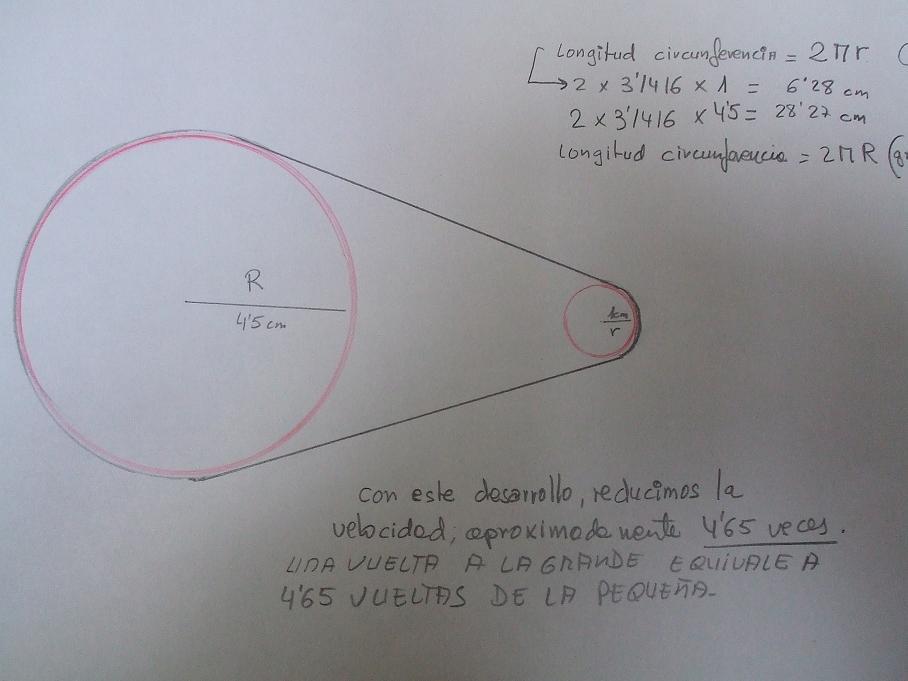 Longitud circunferencia = 2πr (
2 x 3'1416 x 1 = 6'28 cm
2 x 3'1416 x 4'5 = 28'27 cm
Longitud circunferencia = 2πR (
R
4'5 cm
1cm
r
con este desarrollo, reducimos la
velocidad, aproximadamente 4'65 veces.
UNA VUELTA A LA GRANDE EQUIVALE A
4'65 VUELTAS DE LA PEQUEÑA-